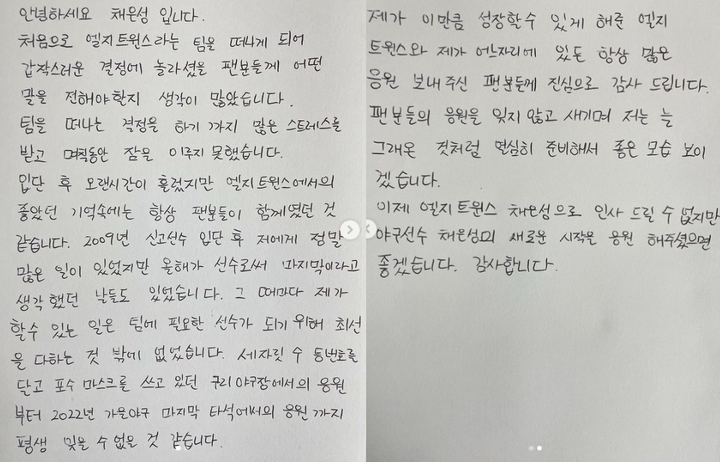 안녕하세요 채은성 입니다.
처음으로 엘지트윈스라는 팀을 떠나게 되어
갑작스러운 결정에 놀라셨을 팬분들께 어떤
말을 전해야할지 생각이 많았습니다.
팀을 떠나는 결정을 하기까지 많은 스트레스를
받고 며칠동안 잠을 이루지 못했습니다.
입단 후 오랜시간이 흘렀지만 엘지트윈스에서의
좋았던 기억속에는 항상 팬분들이 함께였던 것
같습니다. 2009년 신고선수 입단 후 저에게 정말
많은 일이 있었지만 올해가 선수로써 마지막이라고
생각했던 날들도 있었습니다. 그 때마다 제가
할수 있는 일은 팀에 필요한 선수가 되기 위해 최선
을 다하는 것 밖에 없었습니다. 세자릿 수 등번호를
달고 포수 마스크를 쓰고 있던 구리야구장에서의 응원
부터 2022년 가을야구 마지막 타석에서의 응원까지
평생 잊을 수 없을 것 같습니다.
제가 이만큼 성장할수 있게 해준 엘지
트윈스와 제가 어느자리에 있든 항상 많은
응원 보내주신 팬분들께 진심으로 감사 드립니다.
팬분들의 응원을 잊지 않고 새기며 저는 늘
그래온 것처럼 열심히 준비해서 좋은 모습 보이
겠습니다.
이제 엘지트윈스 채은성으로 인사 드릴 수 없지만
야구선수 채은성의 새로운 시작을 응원 해주셨으면
좋겠습니다. 감사합니다.